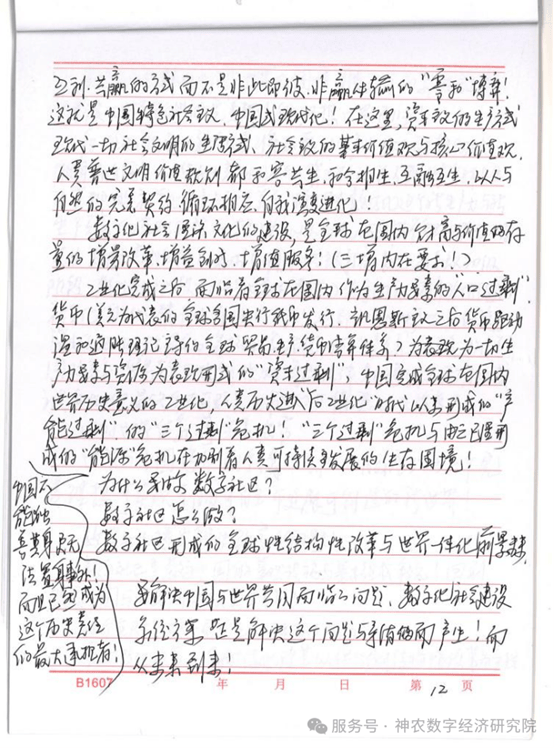 互利、共赢的方式而不是非此即彼、非赢即输的“零和”博弈！
这就是中国特色社会主义、中国式现代化！在这里，资本主义的生产方式
现代一切社会文明的生活方式、社会主义的基本价值观与核心价值观、
人类普世文明价值规则都和容共生，和合相生，互融互生，以人与
自然的完美契约循环相应、自我演变进化！
数字化社会经济、文化的建设，是全球在国内财富与价值的存
量的增量改革、增益创新、增值服务！（三增内在要求！）
工业化完成之后，而临着全球在国内作为生产力要素的“人口过剩”，
货币（美元为代表的全球各国央行纸币发行、凯恩斯主义之后货币驱动
温和通胀理论主导的全球贸易生产、货币结算体系）为表现为一切生
产力要素与资源为表现形式的“资本过剩”，中国完成全球在国内
世界历史意义的工业化，人类历史进入“后工业化”时代以来形成的“产
能过剩”的“三个过剩”危机！“三个过剩”危机与由三个过剩形
成的“能源”危机在切割着人类可持续发展的生存困境！
为什么要做数字社区？
数字社区怎么做？
数字社区形成的全球性结构性改革与世界一体化前景未来，
中国不
能独
善其身，无
法置身事外！
而且已然成为
这个历史责任
的最大承担者！
要解决中国与世界共同面临的问题、数字化社会建设
系统方案正是解决这个问题与矛盾的而产生！而
从未来到来！
B1607
年 月 日 第 12 页
服务号 · 神农数字经济研究院